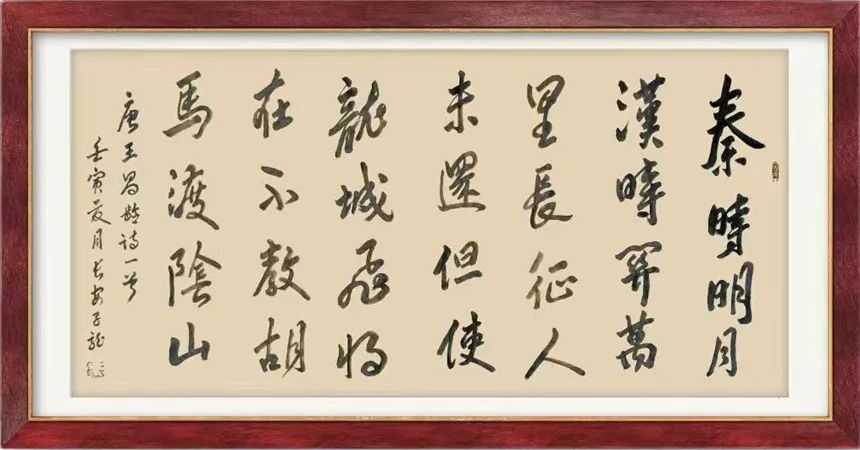 秦時明月
漢時關萬
里長征人
未還但使
龍城飛將
在不教胡
馬渡陰山
唐王昌齡詩一首
壬寅夏月長安子龍